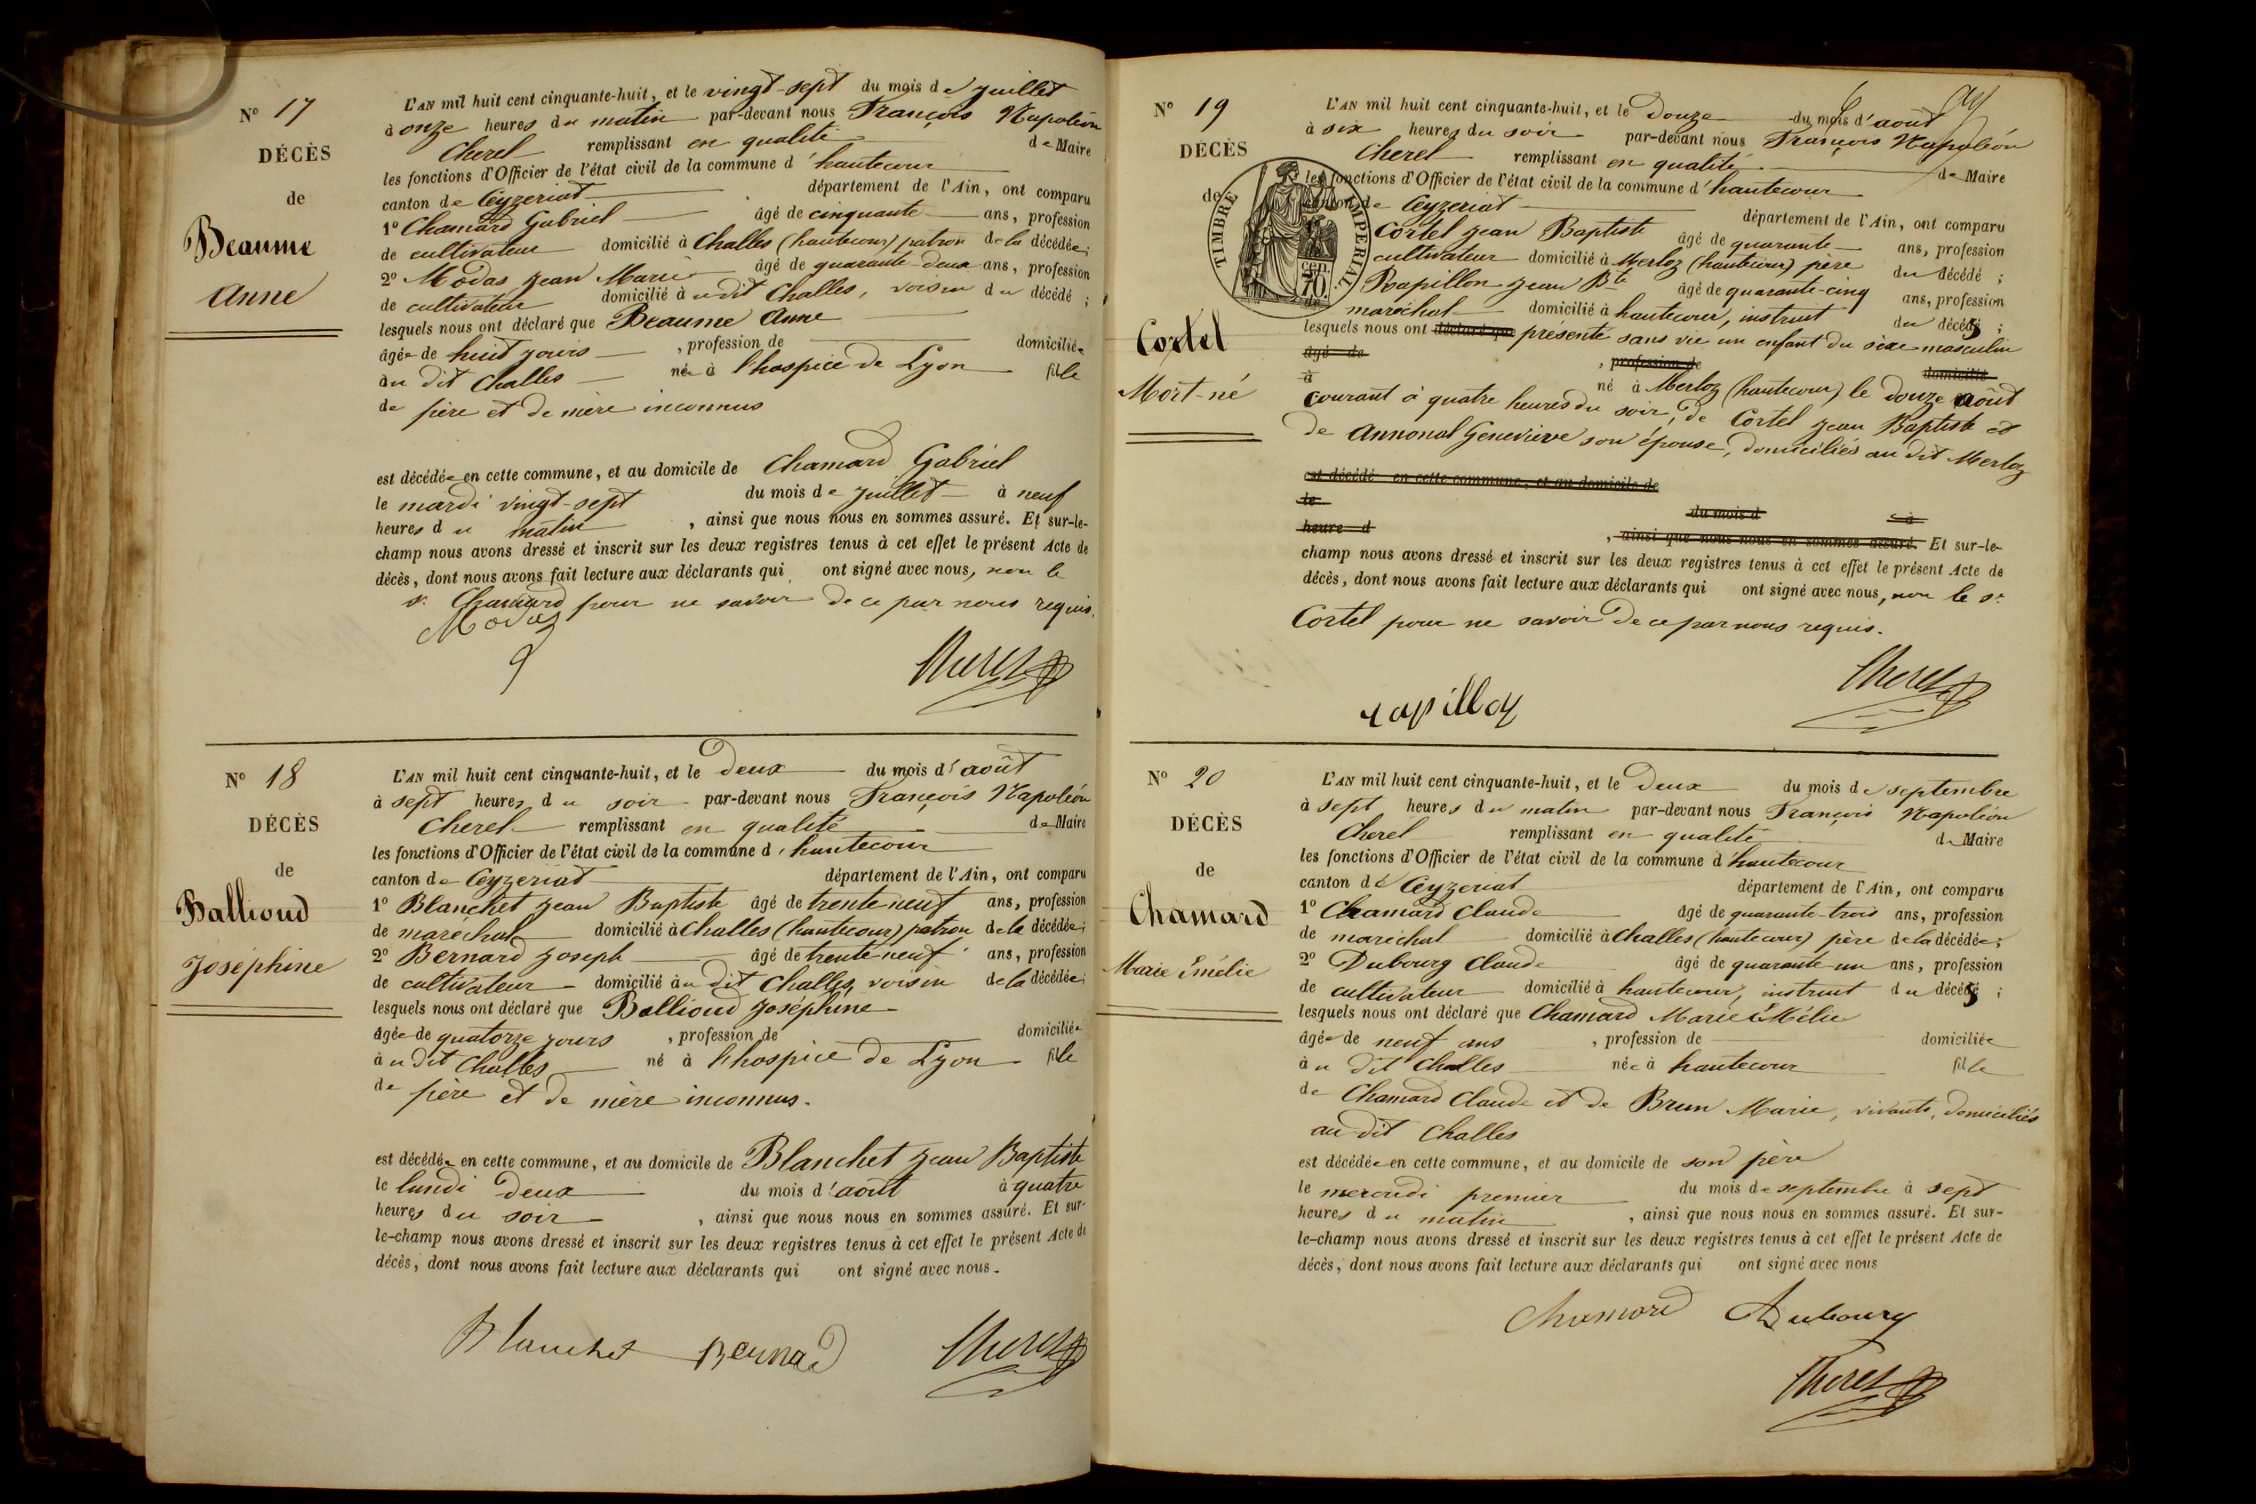 N° 17
DÉCÈS
de
Beaume
Anne
L'AN mil huit cent cinquante-huit, et le vingt-sept du mois de juillet
à onze heures du matin par-devant nous François Napoléon
Cherel remplissant en qualité de Maire
les fonctions d'Officier de l'état civil de la commune d'hautecour
canton de Ceyzeriat département de l'Ain, ont comparu
1° Chamard Gabriel âgé de cinquante ans, profession
de cultivateur domicilié à Challes (hautecour) patron de la décédée;
2° Modas Jean Marie âgé de quarante-deux ans, profession
de cultivateur domicilié au dit Challes, voisin du décédé;
lesquels nous ont déclaré que Beaume Anne
âgée de huit jours, profession de domiciliée
au dit Challes née à l'hospice de Lyon fille
de père et de mère inconnus
est décédée en cette commune, et au domicile de Chamard Gabriel
le mardi vingt-sept du mois de juillet à neuf
heures du matin, ainsi que nous nous en sommes assuré. Et sur-le-
champ nous avons dressé et inscrit sur les deux registres tenus à cet effet le présent Acte de
décès, dont nous avons fait lecture aux déclarants qui ont signé avec nous, non le
sr Chamard pour ne savoir de ce par nous requis.
Modas
Cherel
N° 18
DÉCÈS
de
Ballioud
Joséphine
L'AN mil huit cent cinquante-huit, et le deux du mois d'août
à sept heures du soir par-devant nous François Napoléon
Cherel remplissant en qualité de Maire
les fonctions d'Officier de l'état civil de la commune d'hautecour
canton de Ceyzeriat département de l'Ain, ont comparu
1° Blanchet Jean Baptiste âgé de trente-neuf ans, profession
de maréchal domicilié à Challes (hautecour) patron de la décédée;
2° Bernard Joseph âgé de trente neuf ans, profession
de cultivateur domicilié au dit Challes, voisin de la décédée;
lesquels nous ont déclaré que Ballioud Joséphine
âgée de quatorze jours, profession de domiciliée
au dit Challes né à l'hospice de Lyon fille
de père et de mère inconnus.
est décédée en cette commune, et au domicile de Blanchet Jean Baptiste
le lundi deux du mois d'août à quatre
heures du soir, ainsi que nous nous en sommes assuré. Et sur-
le-champ nous avons dressé et inscrit sur les deux registres tenus à cet effet le présent Acte de
décès, dont nous avons fait lecture aux déclarants qui ont signé avec nous.
Blanchet Bernard Cherel
N° 19
DÉCÈS
de
Cortel
Mort-né
TIMBRE IMPERIAL
CEN. 70.
L'AN mil huit cent cinquante-huit, et le douze du mois d'août
à six heures du soir par-devant nous François Napoléon
Cherel remplissant en qualité de Maire
les fonctions d'Officier de l'état civil de la commune d'hautecour
canton de Ceyzeriat département de l'Ain, ont comparu
Cortel Jean Baptiste âgé de quarante ans, profession
cultivateur domicilié à Merloz (hautecour) père du décédé;
Rapillon Jean Bte âgé de quarante-cinq ans, profession
de maréchal domicilié à hautecour, instruit du décès;
lesquels nous ont déclaré que présenté sans vie un enfant du sexe masculin
âgé de, profession de domicilié
à né à Merloz (hautecour) le douze août
courant à quatre heures du soir, de Cortel Jean Baptiste et
de Annonal Geneviève son épouse, domiciliés au dit Merloz
est décédé en cette commune, et au domicile de
le du mois d à
heure d, ainsi que nous nous en sommes assuré. Et sur-le-
champ nous avons dressé et inscrit sur les deux registres tenus à cet effet le présent Acte de
décès, dont nous avons fait lecture aux déclarants qui ont signé avec nous, non le sr
Cortel pour ne savoir de ce par nous requis.
Cherel
rapillon
N° 20
DÉCÈS
de
Chamard
Marie Émélie
L'AN mil huit cent cinquante-huit, et le deux du mois de septembre
à sept heures du matin par-devant nous François Napoléon
Cherel remplissant en qualité de Maire
les fonctions d'Officier de l'état civil de la commune d'hautecour
canton de Ceyzeriat département de l'Ain, ont comparu
1° Chamard Claude âgé de quarante-trois ans, profession
de maréchal domicilié à Challes (hautecour) père de la décédée;
2° Dubourg Claude âgé de quarante-un ans, profession
de cultivateur domicilié à hautecour, instruit du décès;
lesquels nous ont déclaré que Chamard Marie Émélie
âgée de neuf ans, profession de domiciliée
au dit Challes née à hautecour fille
de Chamard Claude et de Brun Marie, vivants, domiciliés
au dit Challes
est décédée en cette commune, et au domicile de son père
le mercredi premier du mois de septembre à sept
heures du matin, ainsi que nous nous en sommes assuré. Et sur-
le-champ nous avons dressé et inscrit sur les deux registres tenus à cet effet le présent Acte de
décès, dont nous avons fait lecture aux déclarants qui ont signé avec nous
Chamard Dubourg
Cherel